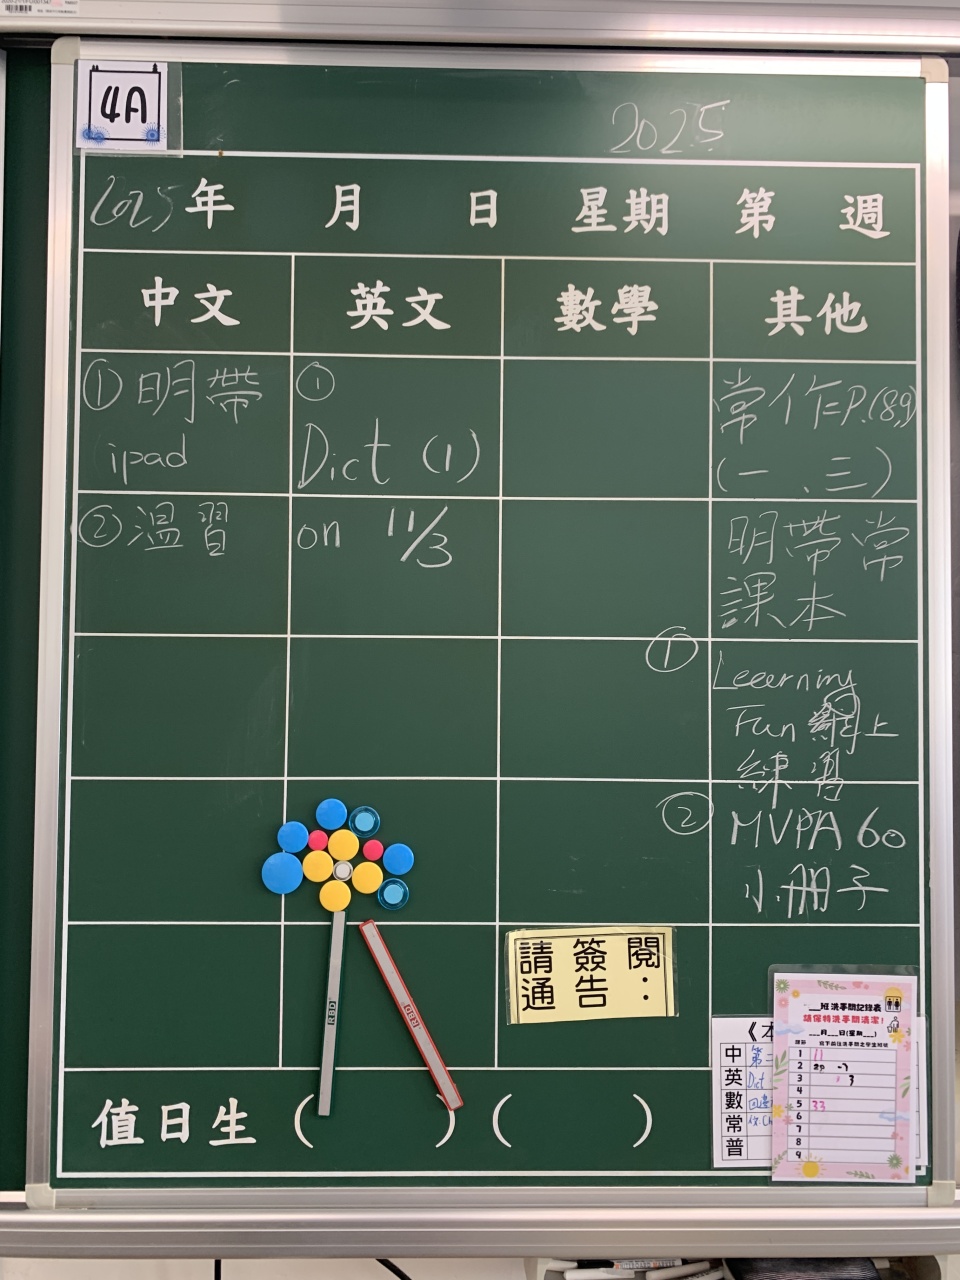 4A
2025
2025年 月 日 星期 第 週
中文 英文 數學 其他
①明帶
ipad
②溫習
①
Dict (1)
on 11/3
常作=P.(8,9)
(一、三)
明帶常
課本
①
Leeerning
Fun 網上
練習
② MVPA 60
小冊子
請簽閱
通告：
值日生 ( ) ( )
《本
中 第二
英 Dict
數
常 作.Ch
普
__班洗手間記錄表
請保持洗手間清潔!
___月___日(星期___)
1 11
2
3 3
4
5 33
6
7
8
9
RBD
RBD